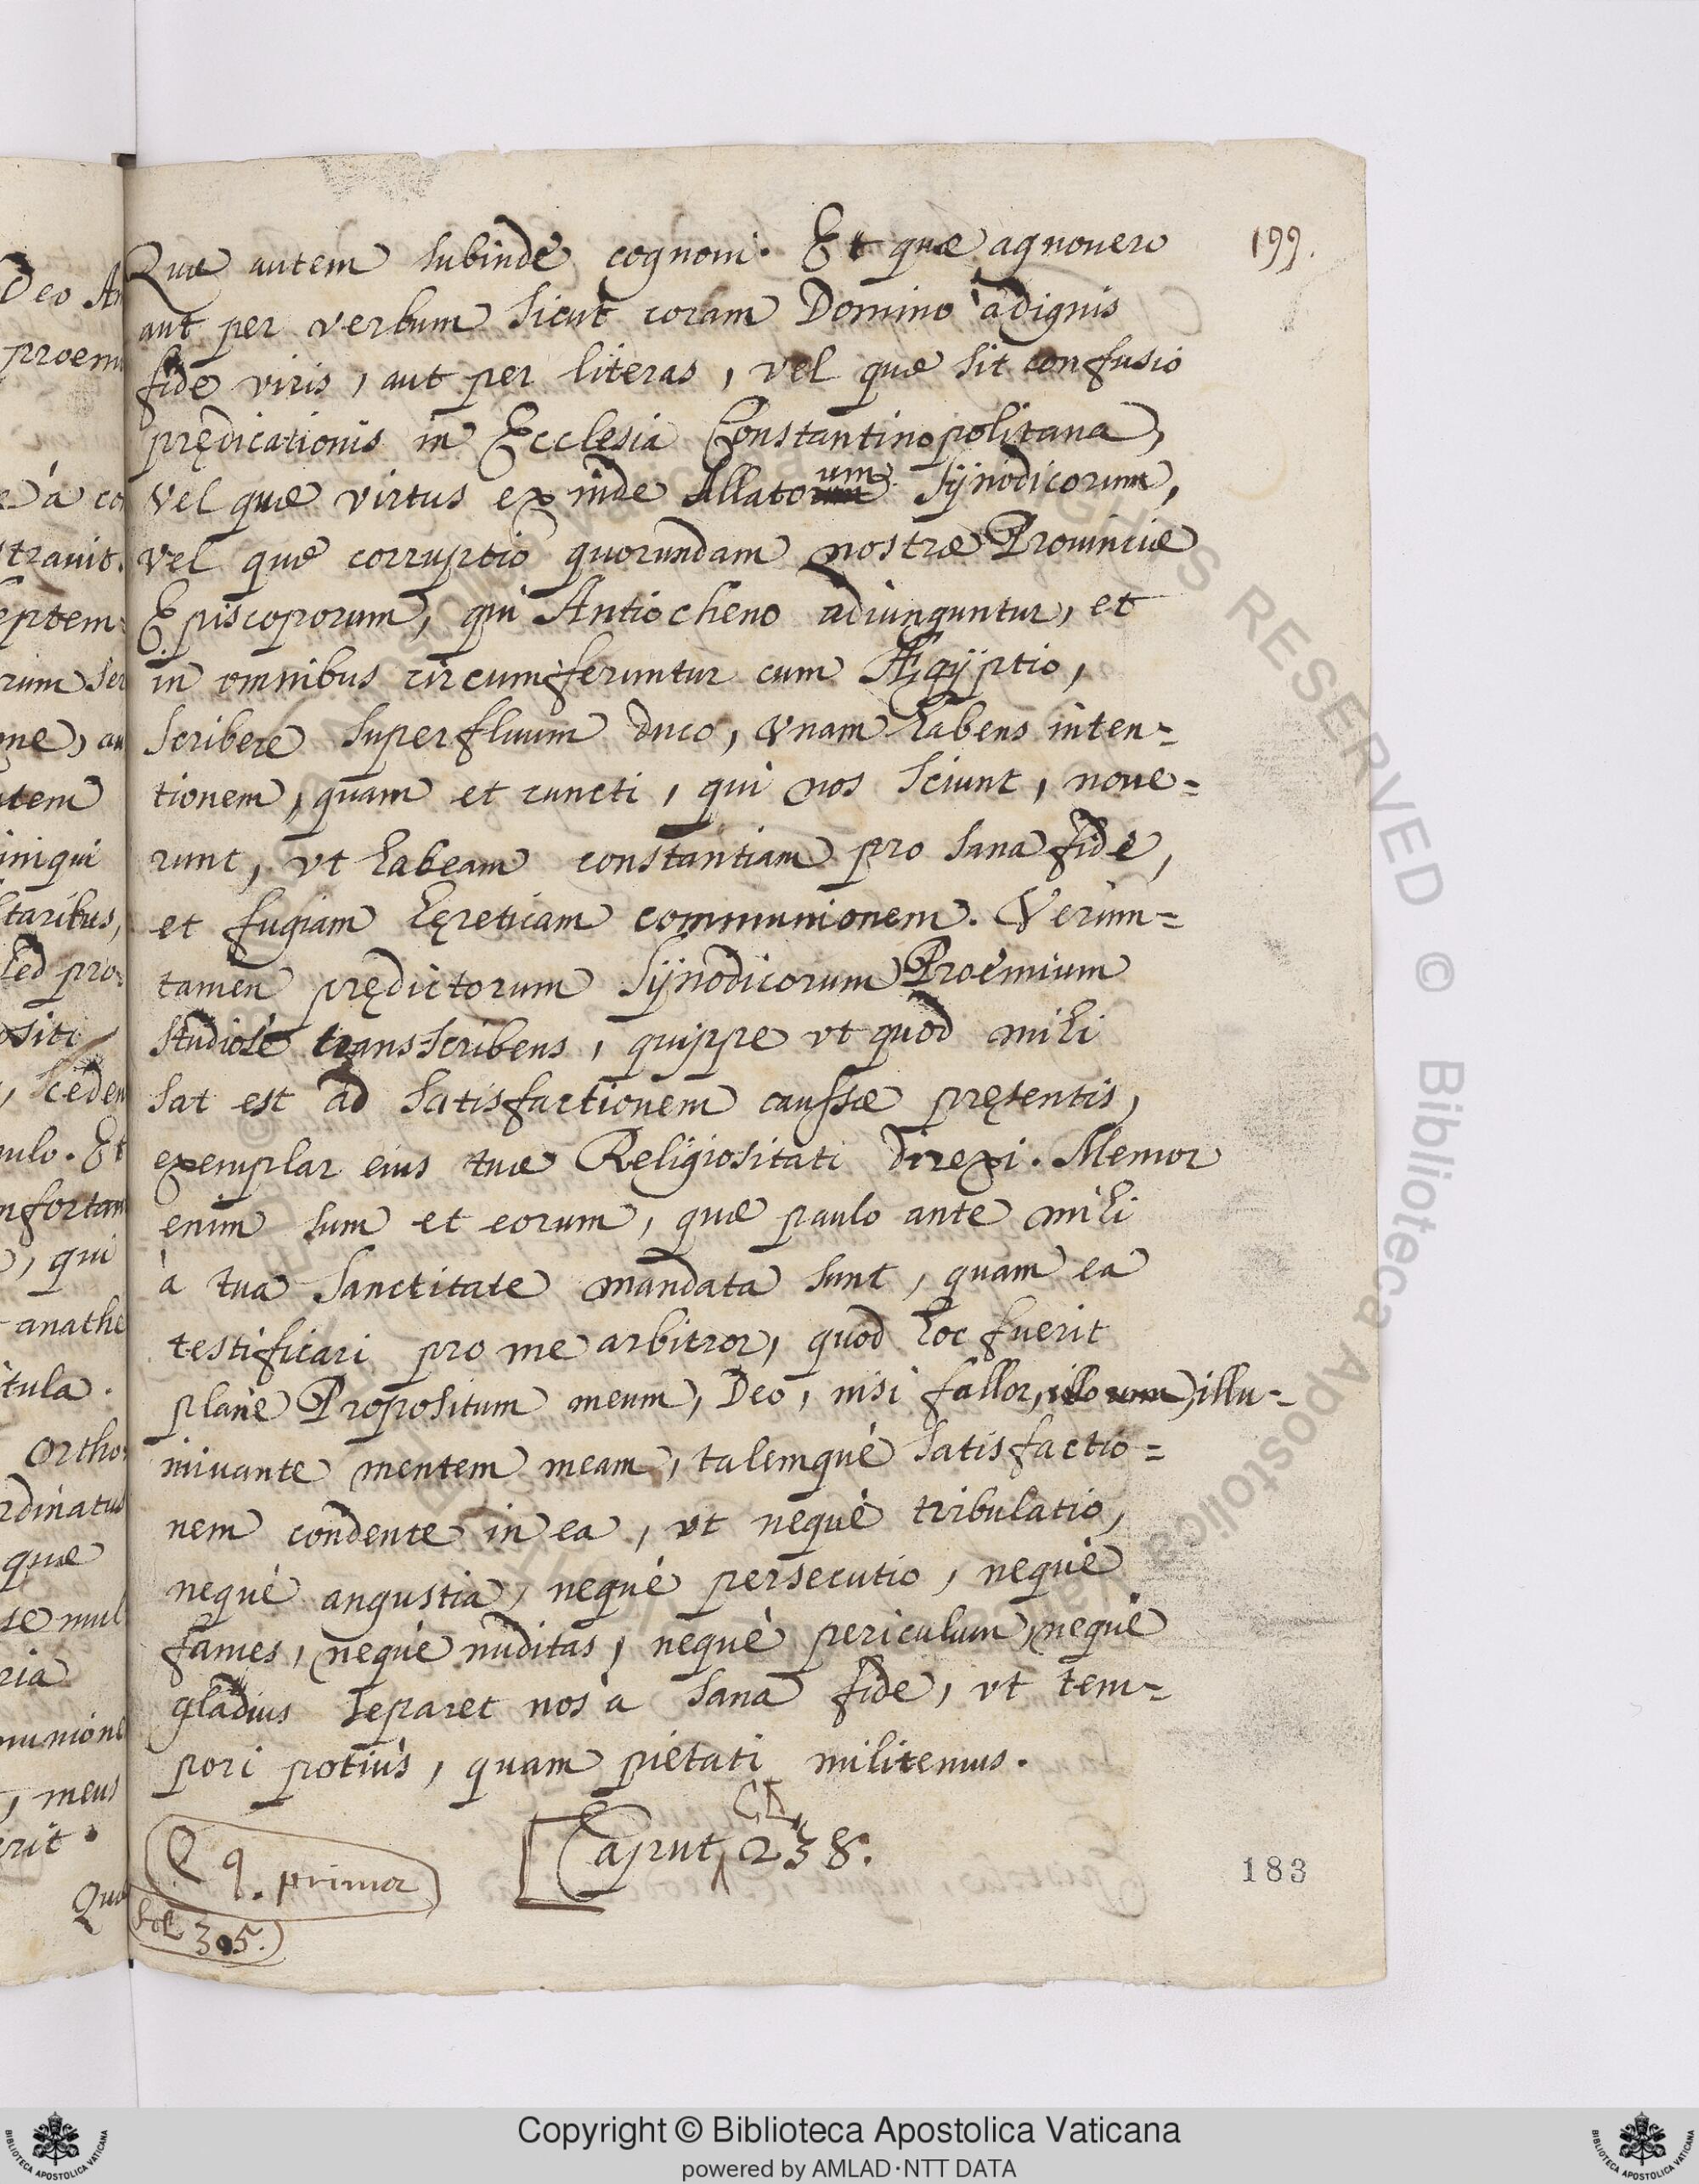 199.
Quæ autem subinde cognoui. Et quæ agnouero
aut per verbum sicut coram Domino à dignis
fide viris, aut per literas, vel quæ sit confusio
prędicationis in Ecclesia Constantinopolitana,
vel quæ virtus exinde Allatorum Synodicorum,
vel quæ corruptio quorundam nostræ Prouinciæ
Episcoporum, qui Antiocheno adiunguntur, et
in omnibus circumferuntur cum Ægyptio,
scribere superfluum duco, vnam habens inten=
tionem, quam et cuncti, qui nos sciunt, noue=
runt, vt habeam constantiam pro sana fide,
et fugiam hęreticam communionem. Verum=
tamen prędictorum Synodicorum Proemium
studiosè transscribens, quippe vt quod mihi
sat est ad satisfactionem caussæ pręsentis,
exemplar eius tuæ Religiositati direxi. Memor
enim sum et eorum, quæ paulo ante mihi
à tua sanctitate mandata sunt, quam ea
testificari pro me arbitror, quod hoc fuerit
planè Propositum meum, Deo, nisi fallor, illu=
minante mentem meam, talemquè satisfactio=
nem condente in ea, vt nequè tribulatio,
nequè angustia, nequè persecutio, nequè
fames, nequè nuditas, nequè periculum, nequè
gladius separet nos à sana fide, vt tem=
pori potiùs, quam pietati militemus.
[Caput 238.
Q 9. primor
fol 305.
183
Copyright © Biblioteca Apostolica Vaticana
powered by AMLAD·NTT DATA